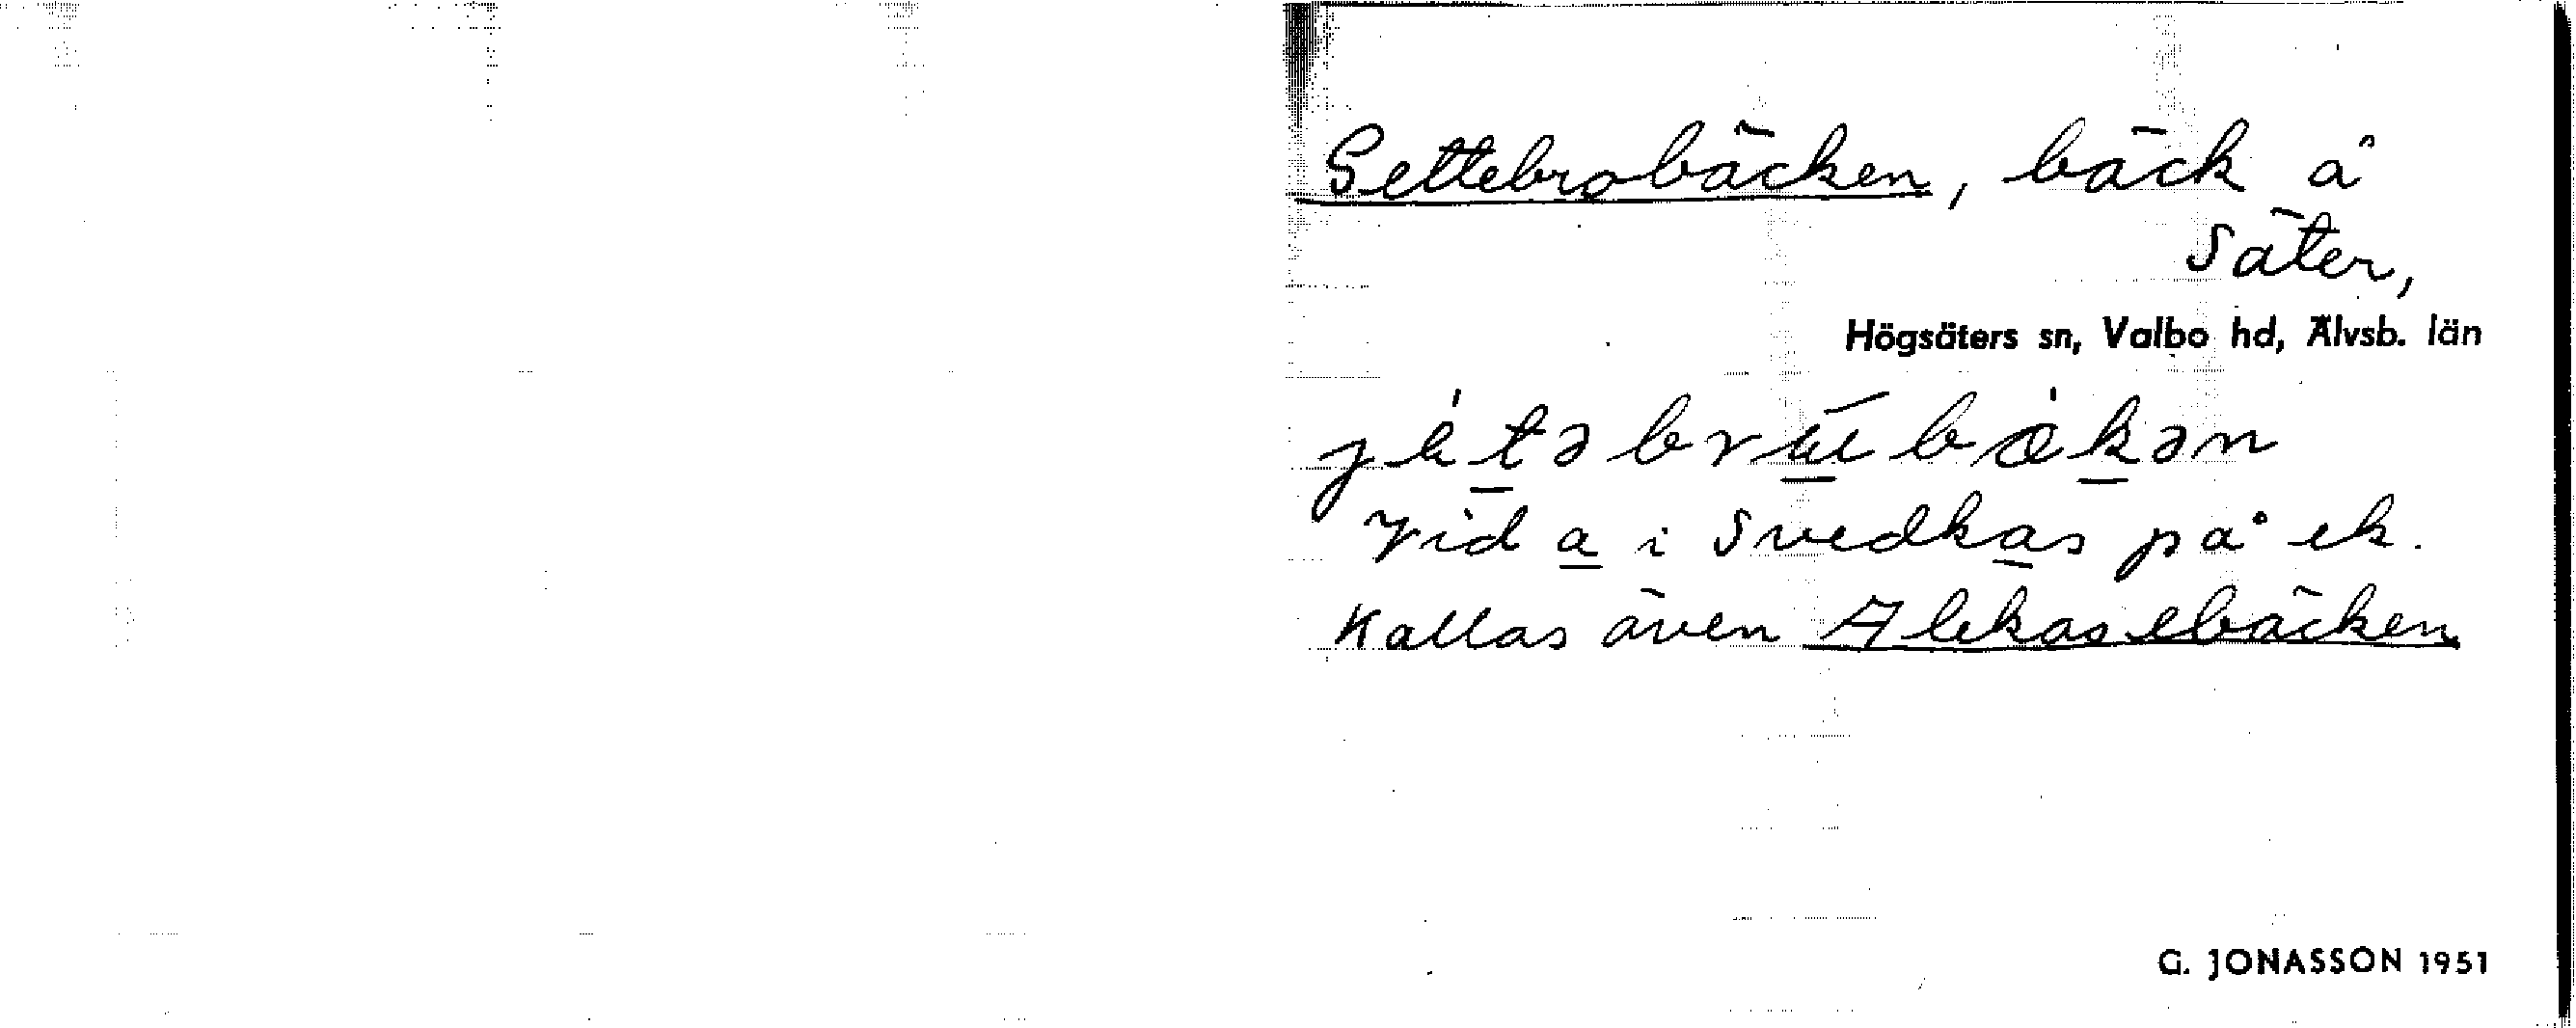 Settebrobäcken, bäck å
Säter,
Högsäters sn, Valbo hd, Älvsb. län
Vid a i Svedkas på ek.
Kallas även Alekasebäcken
G. JONASSON 1951